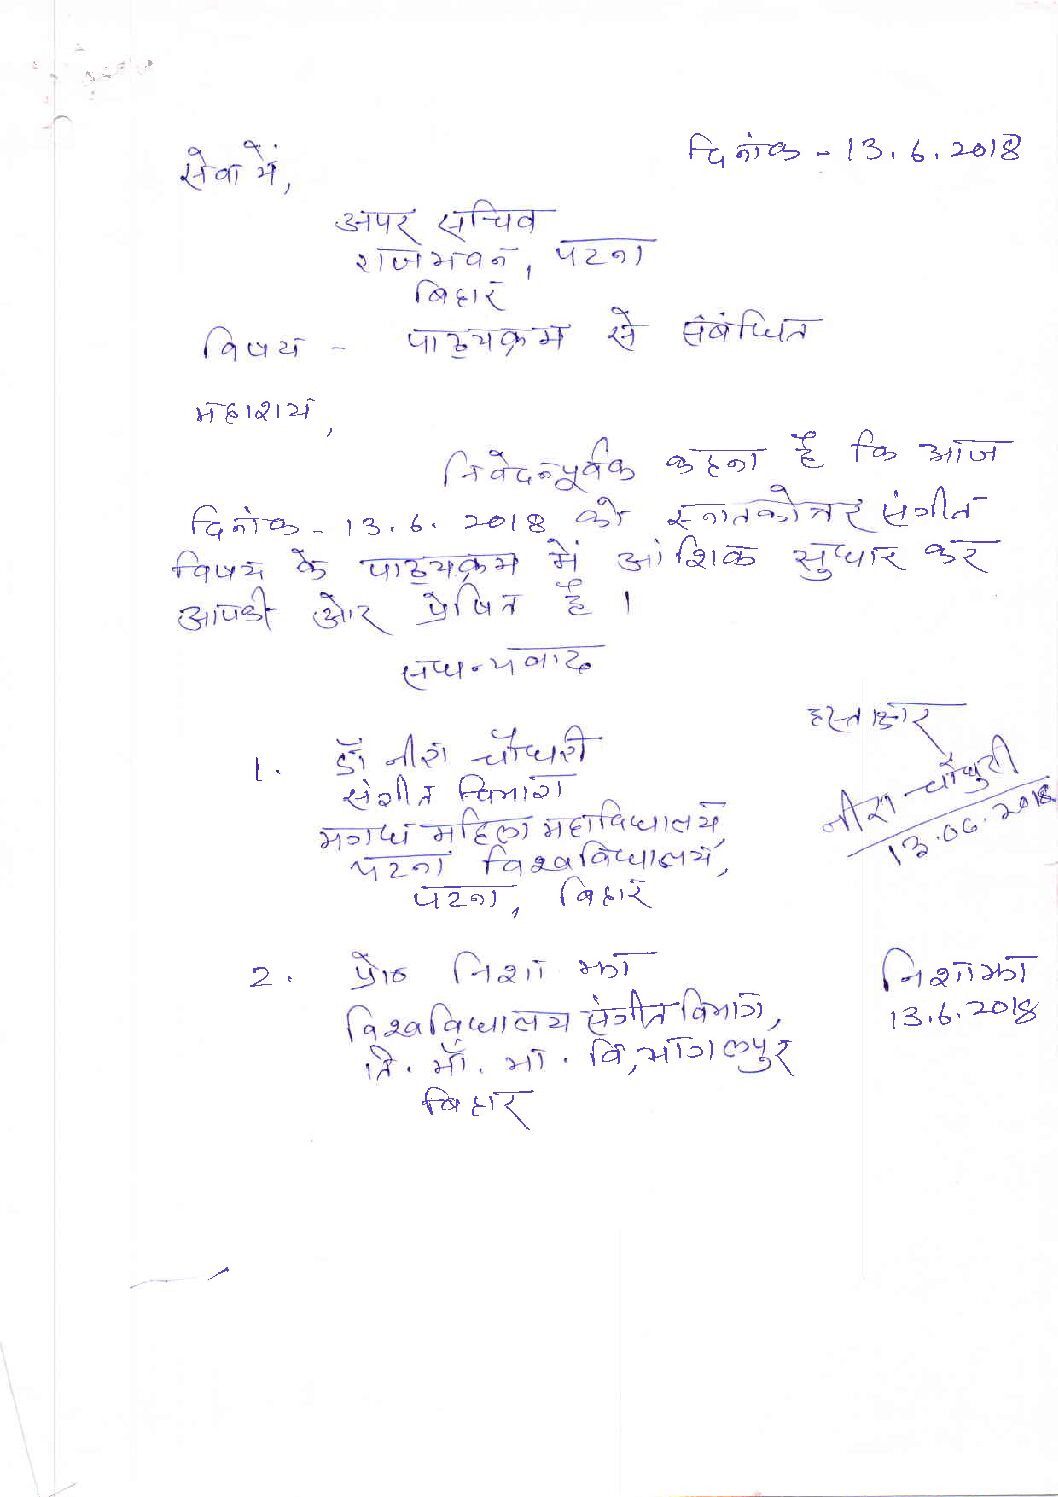 दिनांक - 13.6.2018
सेवा में,
अपर सचिव
राजभवन, पटना
बिहार
विषय - पाठ्यक्रम से संबंधित
महाशय,
निवेदनपूर्वक कहना है कि आज
दिनांक - 13.6.2018 को स्नातकोत्तर संगीत
विषय के पाठ्यक्रम में आंशिक सुधार कर
आपकी ओर प्रेषित है ।
सधन्यवाद
हस्ताक्षर
1. डॉ नीरा चौधरी
संगीत विभाग
मगध महिला महाविद्यालय,
पटना विश्वविद्यालय,
पटना, बिहार
नीरा चौधुरी
13.06.2018
2. प्रो० निशा झा
विश्वविद्यालय संगीत विभाग,
ति. माँ. भा. वि, भागलपुर
बिहार
निशा झा
13.6.2018